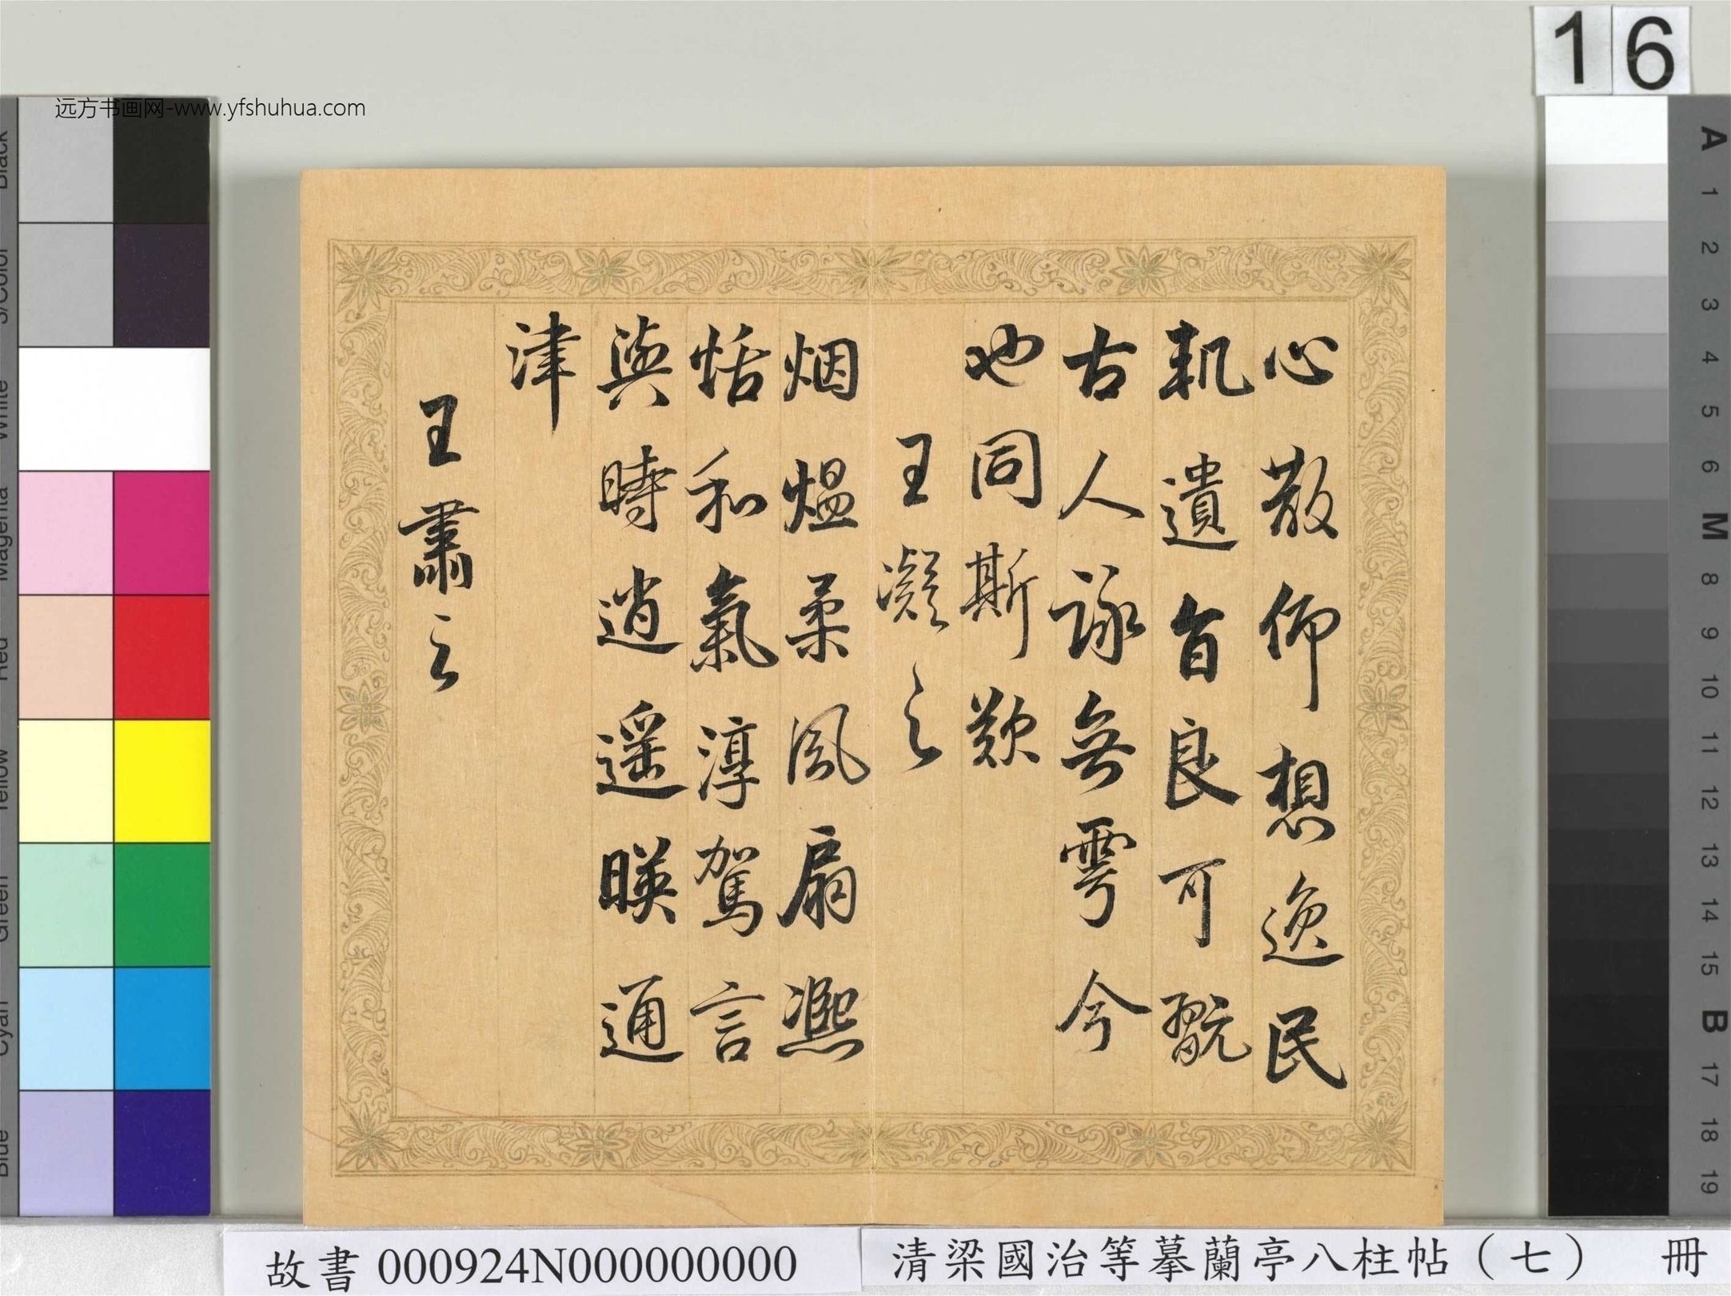 远方书画网-www.yfshuhua.com
16
心散仰想逸民
軌遺音良可翫
古人詠無雩今
也同斯歎
王凝之
烟熅柔風扇凞
恬和氣淳駕言
與時逍遥暎通
津
王肅之
Black
3/Color
White
Magenta
Red
Yellow
Green
Cyan
Blue
A
1
2
3
4
5
6
M
8
9
10
11
12
13
14
15
B
17
18
19
故書 000924N000000000
清梁國治等摹蘭亭八柱帖（七） 冊